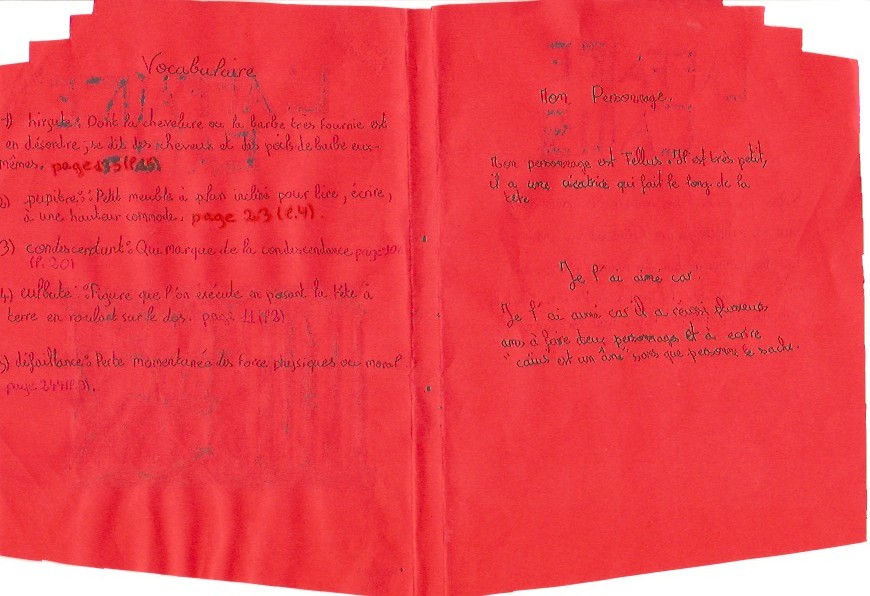 Vocabulaire
1) hirsute : Dont la chevelure ou la barbe très fournie est
en désordre ; se dit des cheveux et des poils de barbe eux-
mêmes. page 135 (l.15)
2) pupitre : Petit meuble à plan incliné pour lire, écrire,
à une hauteur commode. page 23 (l.4).
3) condescendant : Qui marque de la condescendance page
(l.20)
4) culbute : Figure que l'on exécute en posant la tête à
terre en roulant sur le dos. page 11 (l.2)
5) défaillance : Perte momentanée des force physiques ou moral
page 244 (l.).
Mon Personnage.
Mon personnage est Tellus. Il est très petit,
il a une cicatrice qui fait le long de la
tête
Je l'ai aimé car :
Je l'ai aimé car il a réussi plusieurs
ans à faire deux personnages et à ecrire
"caïus est un âne" sans que personne le sache.